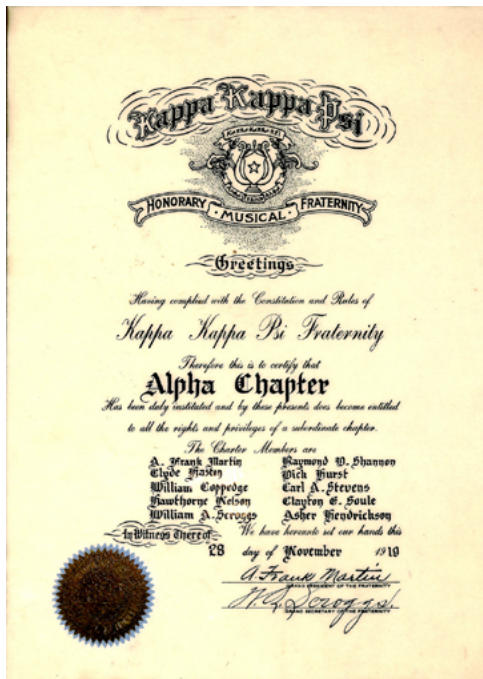 Kappa Kappa Psi
HONORARY MUSICAL FRATERNITY
Greetings
Having complied with the Constitution and Rules of
Kappa Kappa Psi Fraternity
Therefore this is to certify that
Alpha Chapter
Has been duly instituted and by these presents does become entitled
to all the rights and privileges of a subordinate chapter.
The Charter Members are
A. Frank Martin Raymond D. Shannon
Clyde Haston Dick Hurst
William Coppedge Carl A. Stevens
Hawthorne Nelson Clayton E. Soule
William A. Scroggs Asher Hendrickson
In Witness Thereof We have hereunto set our hands this
28 day of November 1919
A. Frank Martin
GRAND PRESIDENT OF THE FRATERNITY
W. A. Scroggs.
GRAND SECRETARY OF THE FRATERNITY